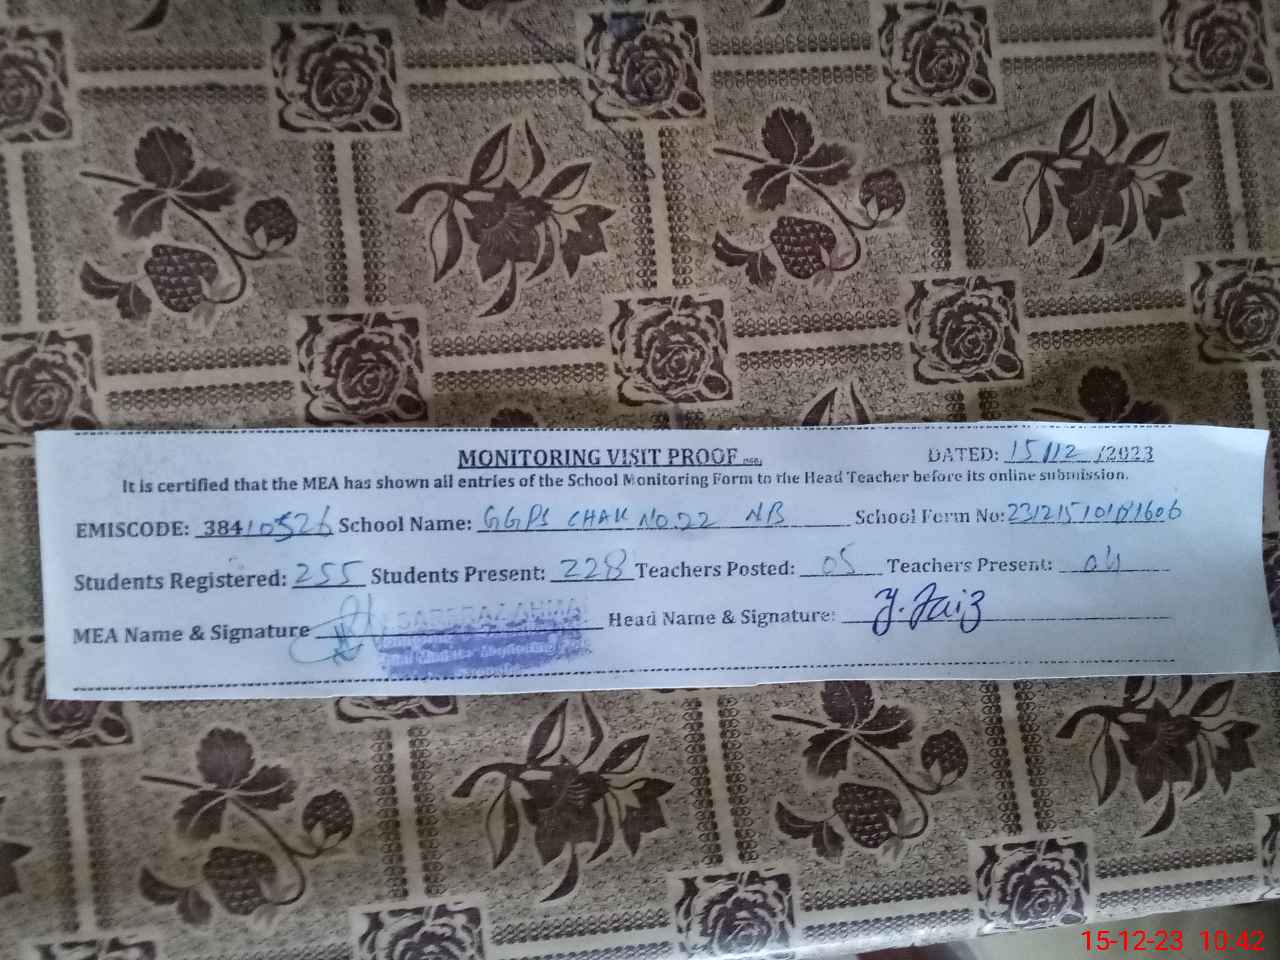 MONITORING VISIT PROOF
DATED: 15/12/2023
It is certified that the MEA has shown all entries of the School Monitoring Form to the Head Teacher before its online submission.
EMISCODE: 38410526 School Name: GGPS CHAK NO.22 NB School Form No:
Students Registered: 255 Students Present: 228 Teachers Posted: 05 Teachers Present: 04
MEA Name & Signature Head Name & Signature: Y. Faiz
15-12-23 10:42